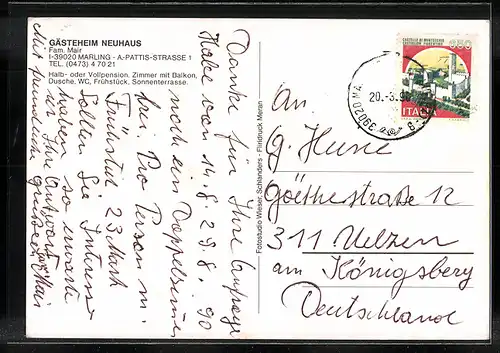 GÄSTEHEIM NEUHAUS
Fam. Mair
I-39020 MARLING - A.-PATTIS-STRASSE 1
TEL. (0473) 4 70 21
Halb- oder Vollpension, Zimmer mit Balkon,
Dusche, WC, Frühstück, Sonnenterrasse.
Danke für Ihre Anfrage
Habe von 14.8 - 29.8. 90
noch ein Doppelzimmer
frei. Pro Person m.
Frühstük 23 Mark
Sollen Sie Interesse
haben so erwarte
ich Ihre Antwort
Mit freundlich Grüssen
Fotostudio Wieser, Schlanders - Flridruck Meran
650
CASTELLO DI MONTECCHIO
CASTIGLION FIORENTINO
ITALIA
39020 MA
20.-3.9
An
G.
Goethestraße 12
311 Uelzen
am Königsberg
Deutschland